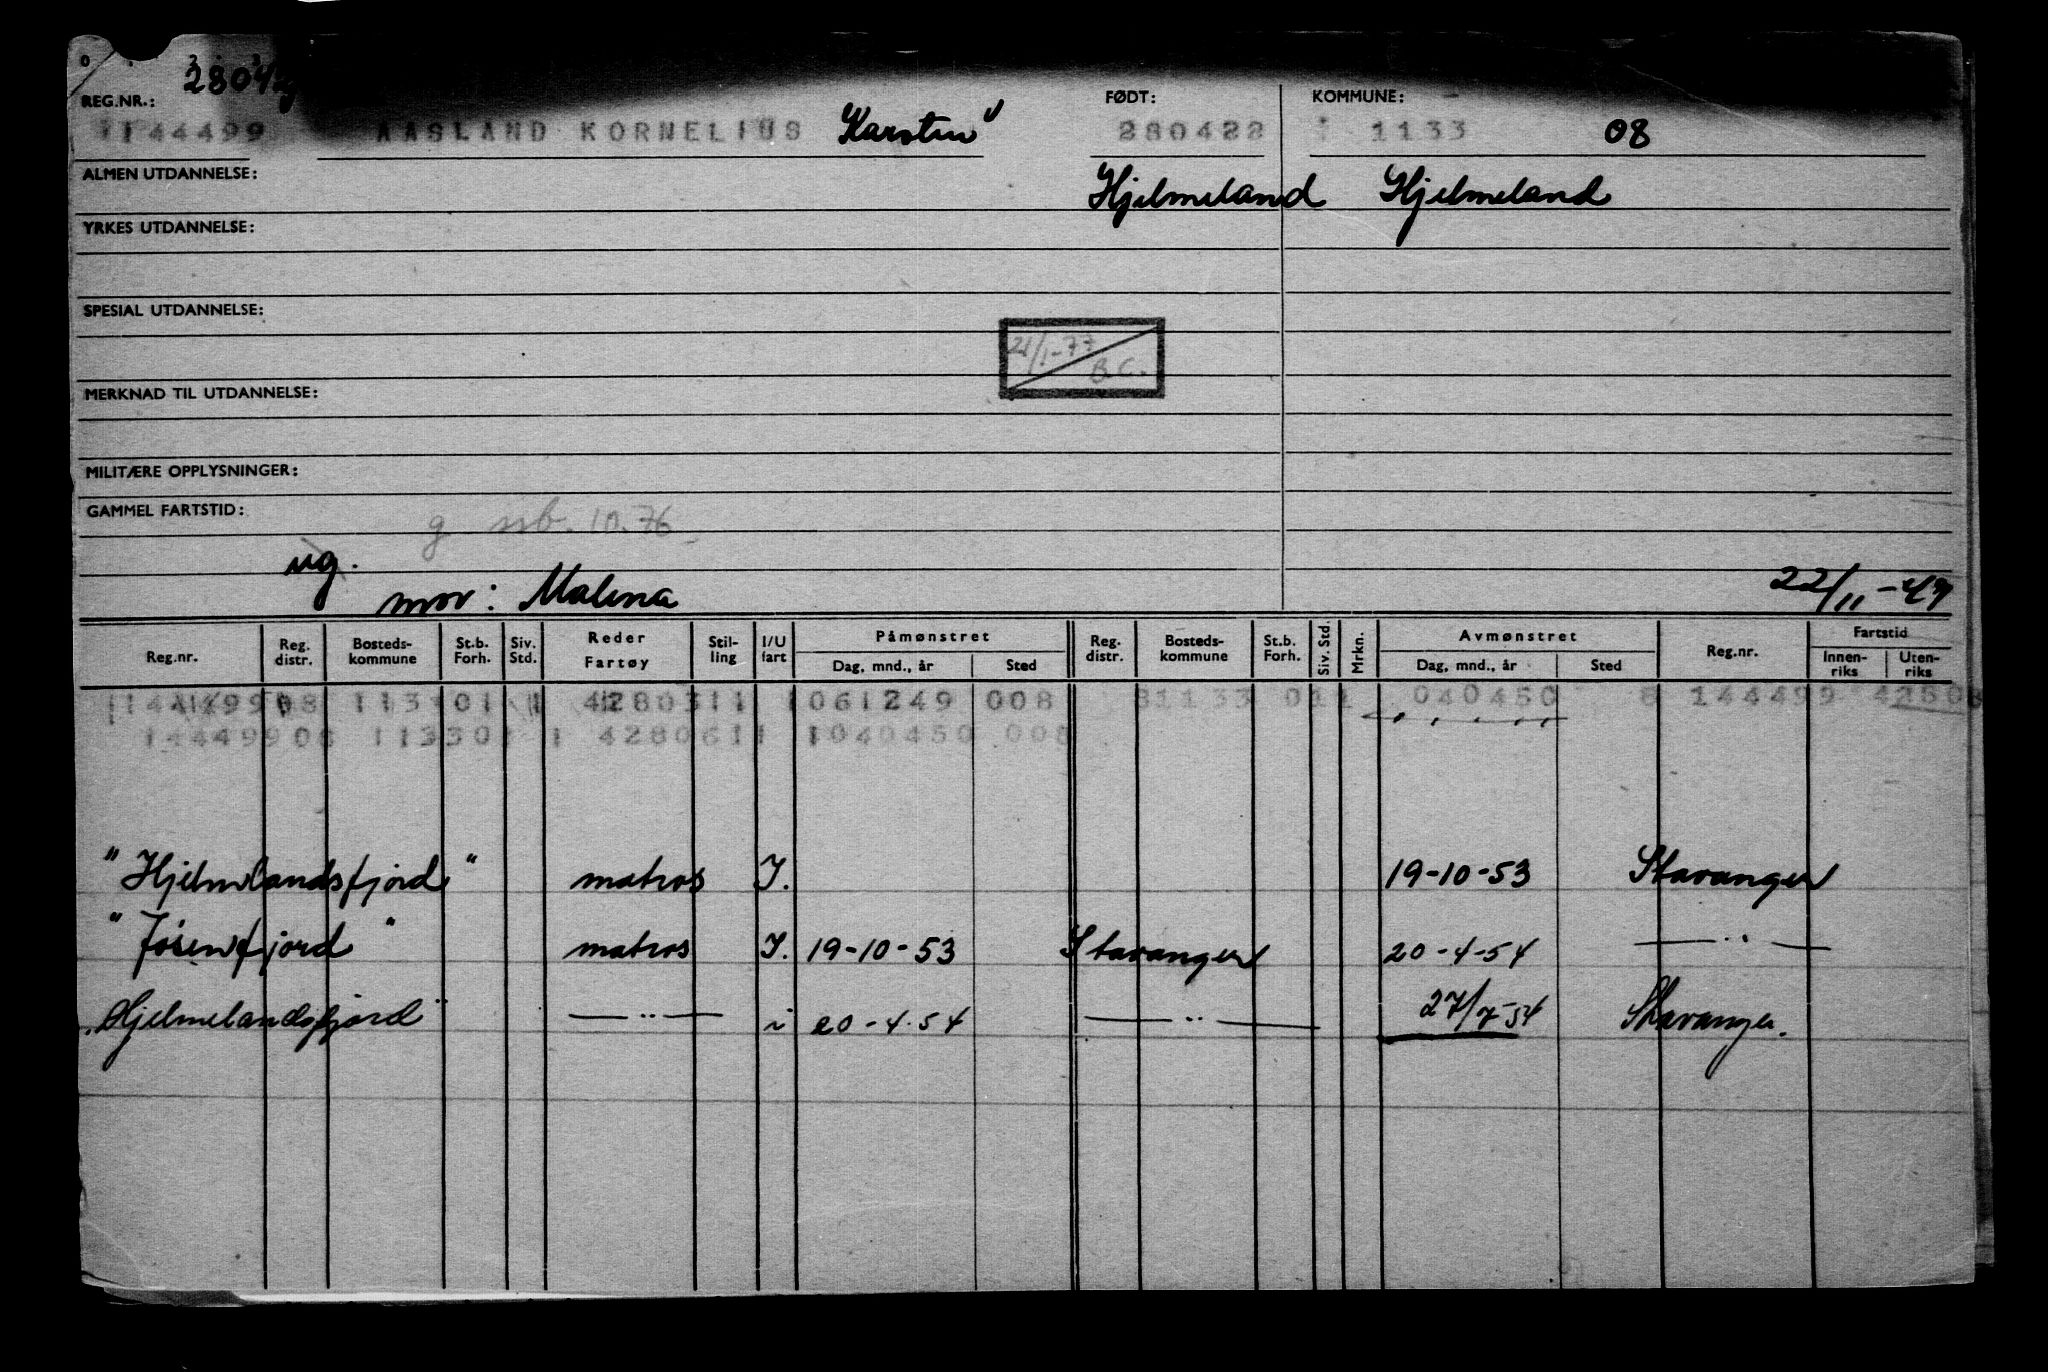 REG.NR.: FØDT: KOMMUNE:
1144499 AASLAND KORNELIUS Karsten" 280422 1133 08
ALMEN UTDANNELSE: Hjelmeland Hjelmeland
YRKES UTDANNELSE:
SPESIAL UTDANNELSE:
21/1-77
B.C.
MERKNAD TIL UTDANNELSE:
MILITÆRE OPPLYSNINGER:
GAMMEL FARTSTID:
g 10.76
ug.
mor: Malena 22/11-49
Reg.nr. Reg. distr. Bosteds- kommune St.b. Forh. Siv. Std. Reder Fartøy Stil- ling I/U fart Påmønstret Dag, mnd., år Sted Reg. distr. Bosteds- kommune St.b. Forh. Siv. Std. Mrkn. Avmønstret Dag, mnd., år Sted Reg.nr. Fartstid Innen- riks Uten- riks
4280311 1 061249 008 81133 011 040450 8 144499
14449908 113301 1 4280611 1040450 008
"Hjelmlandsfjord" matros I. 19-10-53 Stavanger
"Jøsenfjord" matros I. 19-10-53 Stavanger 20-4-54 —"—
"Hjelmelandsfjord" —"— i 20-4-54 —"— 27/7-54 Stavanger.